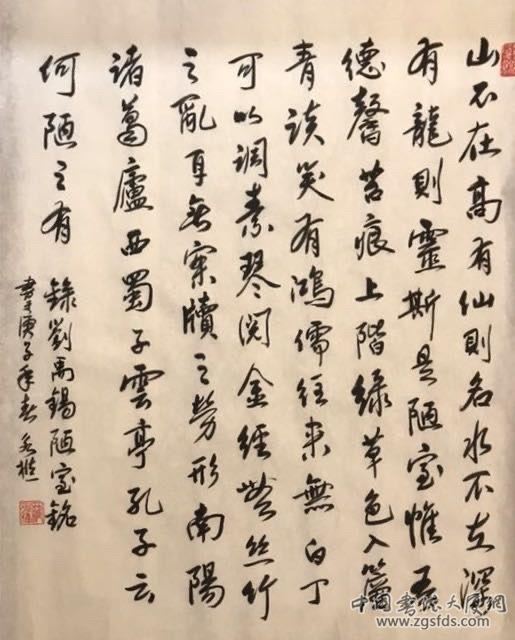 山不在高有仙則名水不在深
有龍則靈斯是陋室惟吾
德馨苔痕上階綠草色入簾
青談笑有鴻儒往來無白丁
可以調素琴閱金經無絲竹
之亂耳無案牘之勞形南陽
諸葛廬西蜀子雲亭孔子云
何陋之有
錄劉禹錫陋室銘
書於庚子年春
中国書法大厦網
www.zgsfds.com